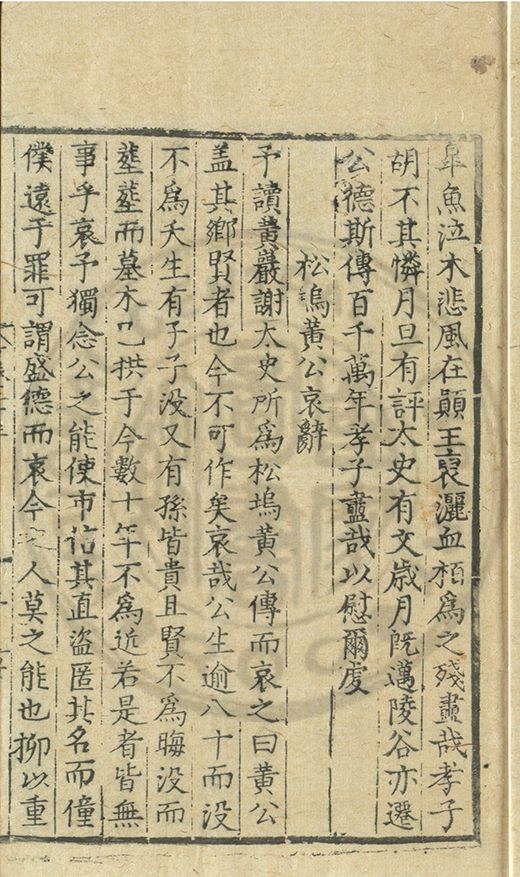 臯魚泣木悲風在顚王裒灑血栢爲之殘盡哉孝子
胡不其憐月旦有評太史有文歲月旣邁陵谷亦遷
公德斯傳百千萬年孝子盡哉以慰爾虔
松塢黃公哀辭
予讀黃巖謝太史所爲松塢黃公傳而哀之曰黃公
盖其鄉賢者也今不可作矣哀哉公生逾八十而没
不爲夭生有子子没又有孫皆貴且賢不爲晦没而
塟塟而墓木已拱于今數十年不爲近若是者皆無
事乎哀予獨念公之能使市估其直盜匿其名而僮
僕遠于罪可謂盛德而哀今之人莫之能也抑以重